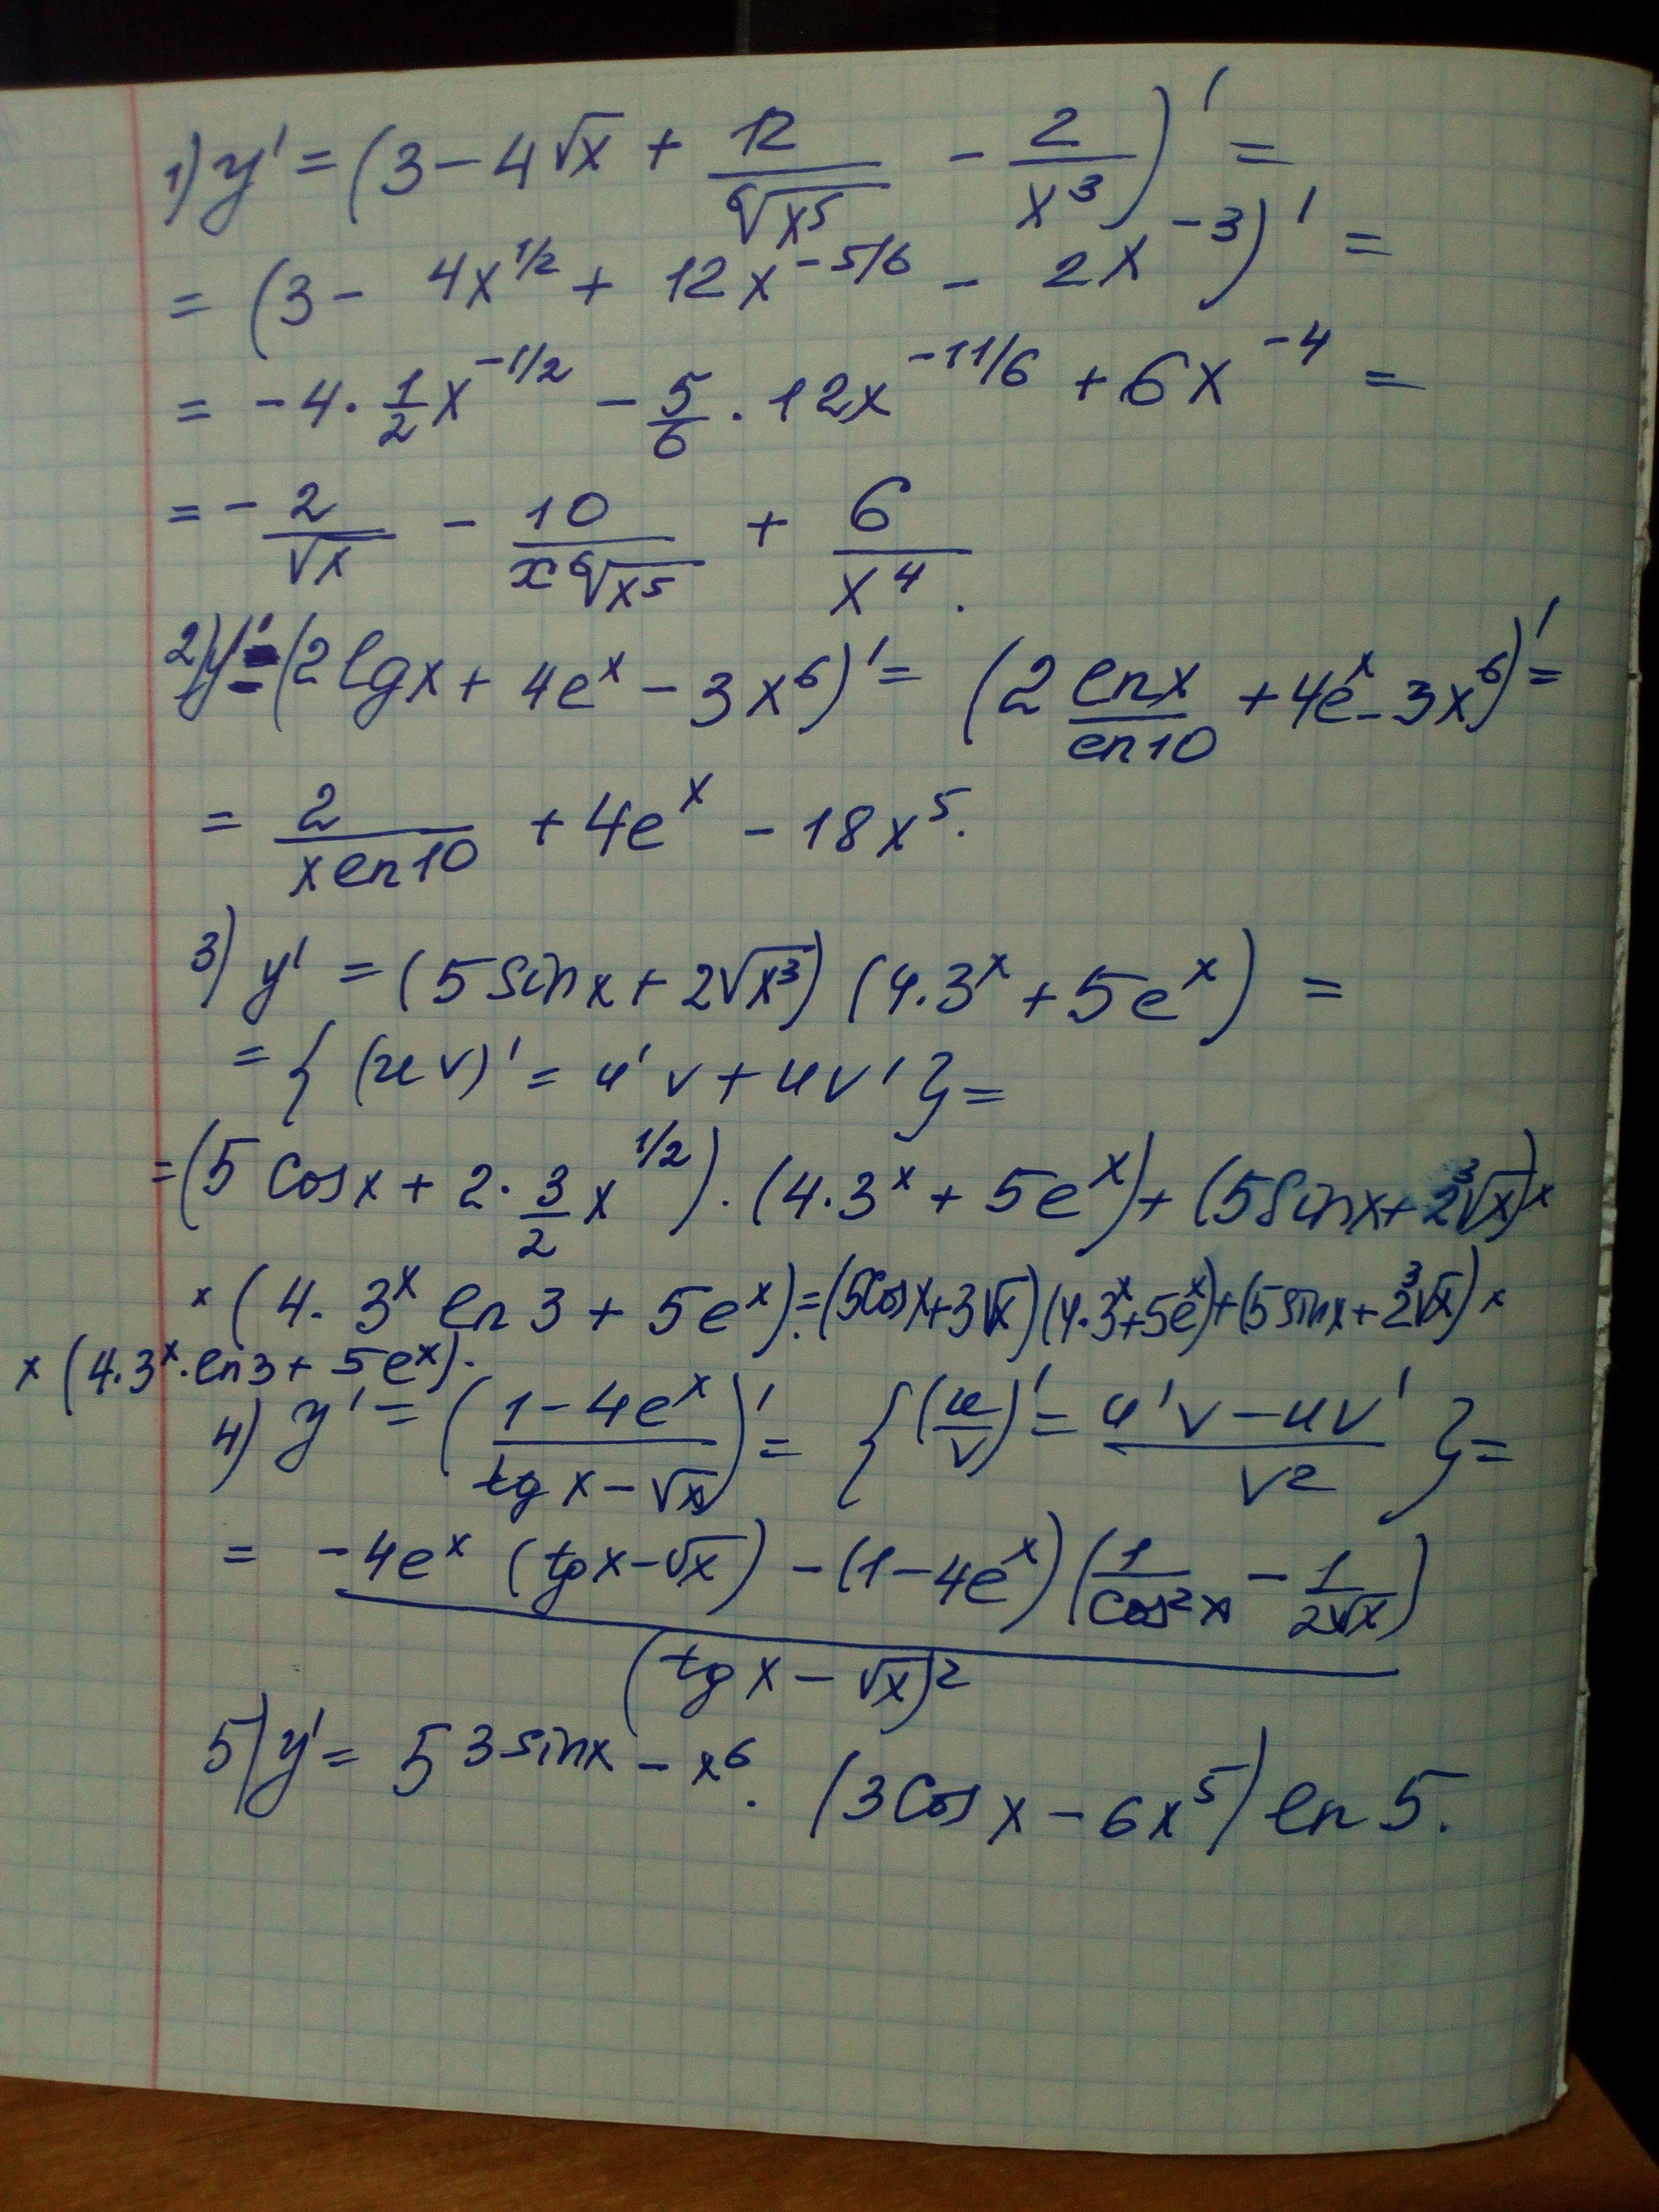 1) y' = (3 − 4√x + 12/⁶√x⁵ − 2/x³)' =
= (3 − 4x^1/2 + 12x^−5/6 − 2x^−3)' =
= −4 · 1/2 x^−1/2 − 5/6 · 12x^−11/6 + 6x^−4 =
= − 2/√x − 10/(x ⁶√x⁵) + 6/x⁴.
2) y' = (2lgx + 4e^x − 3x⁶)' = (2 lnx/ln10 + 4e^x − 3x⁶)' =
= 2/(x ln10) + 4e^x − 18x⁵.
3) y' = (5sinx + 2√x³) (4·3^x + 5e^x) =
= { (uv)' = u'v + uv' } =
= (5cosx + 2 · 3/2 x^1/2) · (4·3^x + 5e^x) + (5sinx + 2³√x) ×
× (4·3^x ln3 + 5e^x). = (5cosx + 3√x) (4·3^x + 5e^x) + (5sinx + 2³√x) ×
× (4·3^x · ln3 + 5e^x).
4) y' = ((1 − 4e^x)/(tgx − √x))' = { (u/v)' = (u'v − uv')/v² } =
= (−4e^x (tgx − √x) − (1 − 4e^x) (1/cos²x − 1/2√x))/(tgx − √x)²
5) y' = 5^(3sinx − x⁶) · (3cosx − 6x⁵) ln5.